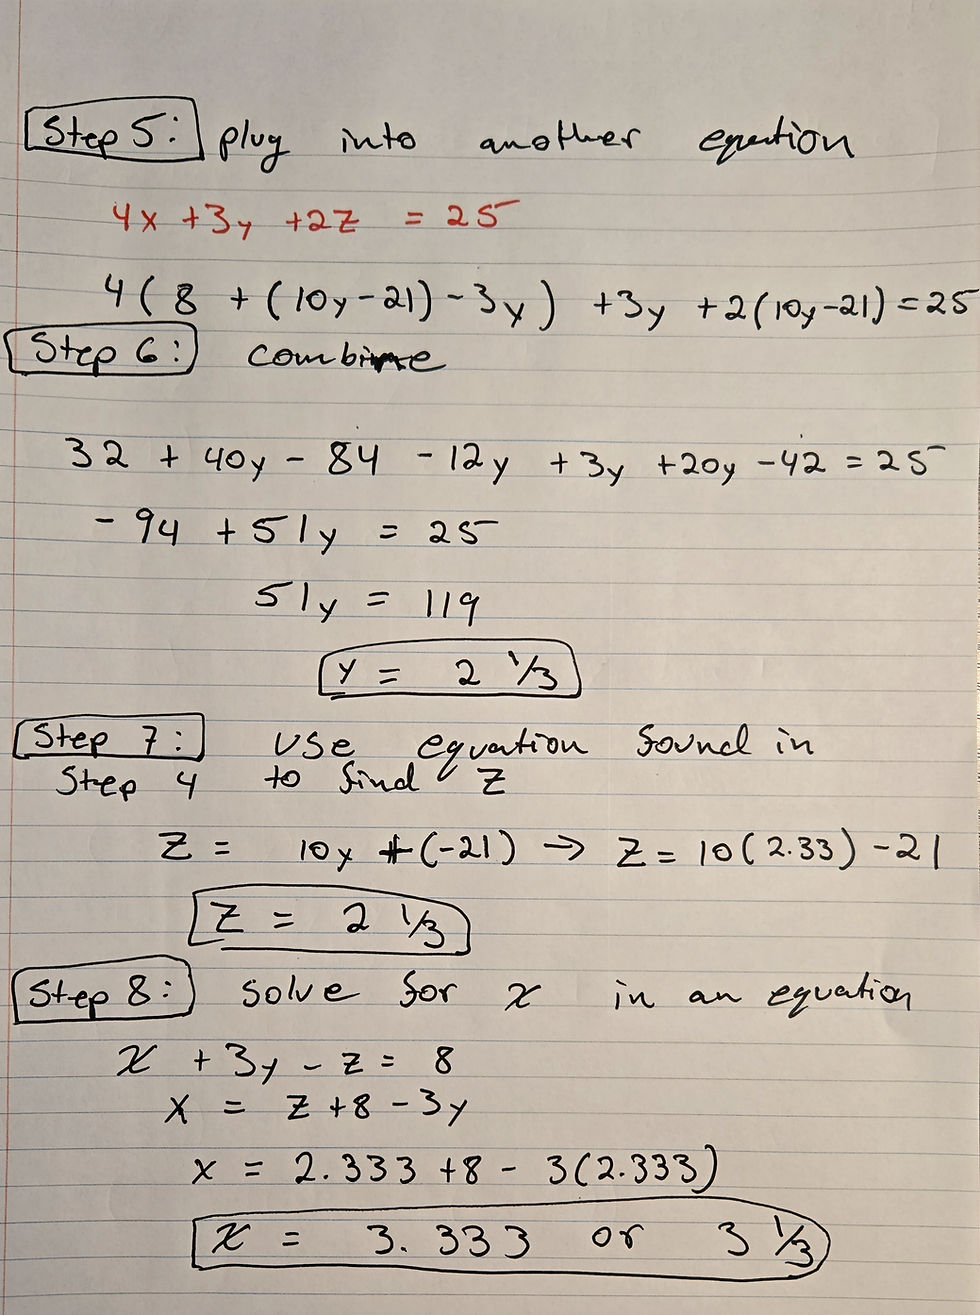 Step 5: plug into another equation
4x + 3y + 2z = 25
4(8 + (10y - 21) - 3y) + 3y + 2(10y - 21) = 25
Step 6: combine
32 + 40y - 84 - 12y + 3y + 20y - 42 = 25
- 94 + 51y = 25
51y = 119
y = 2 1/3
Step 7: use equation found in
Step 4 to find z
z = 10y + (-21) → z = 10(2.33) - 21
z = 2 1/3
Step 8: solve for x in an equation
x + 3y - z = 8
x = z + 8 - 3y
x = 2.333 + 8 - 3(2.333)
x = 3.333 or 3 1/3